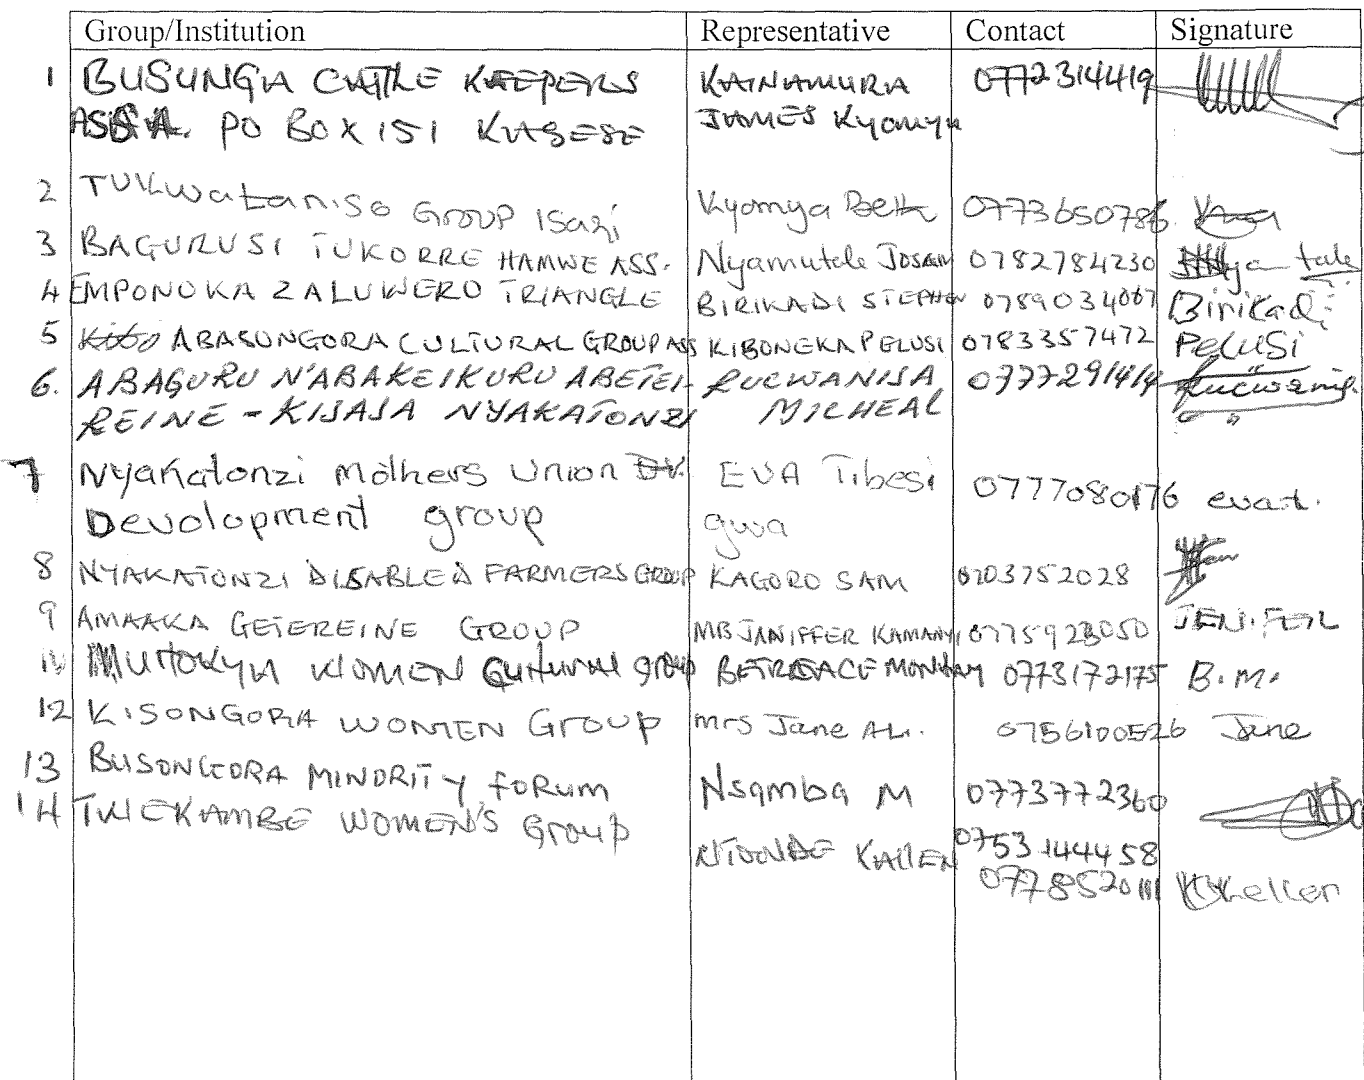 Group/Institution Representative Contact Signature
1 BUSUNGA CATTLE KEEPERS KAINAMURA 0772314419
ASSA. PO BOX 151 KASESE JAMES Kyomya
2 TUKWataniso GROUP Isazi Kyomya Beth 0773650786
3 BAGURUSI TUKORRE HAMWE ASS. Nyamutale JOSAM 0782784230
4 EMPONOKA ZALUWERO TRIANGLE BIRIKADI STEPHEN 0789034067 Birikadi
5 ABASONGORA CULTURAL GROUP ASS KIBONEKA PELUSI 0783357472 PELUSI
6. ABAGURU N'ABAKEIKURU ABETEI- RUCWANISA 0777291414
REINE - KISASA NYAKATONZI MICHEAL
7 Nyakatonzi mothers Union EVA Tibesi 0777080176 eva.t.
Development group gwa
8 NYAKATONZI DISABLED FARMERS GROUP KAGORO SAM 0703752028
9 AMAAKA GETEREINE GROUP MRS JANIFFER KAMANYI 0775923050 JENIFER
MUHOKYA WOMEN Cultural group BETREACE MONDAY 0773172175 B.M.
12 KISONGORA WOMEN Group mrs Jane ALI. 0756100526 Jane
13 BUSONGORA MINORITY FORUM Nsamba M 0773772360
14 TWEKAMBE WOMEN'S Group KALLEN 0753144458
0778520111